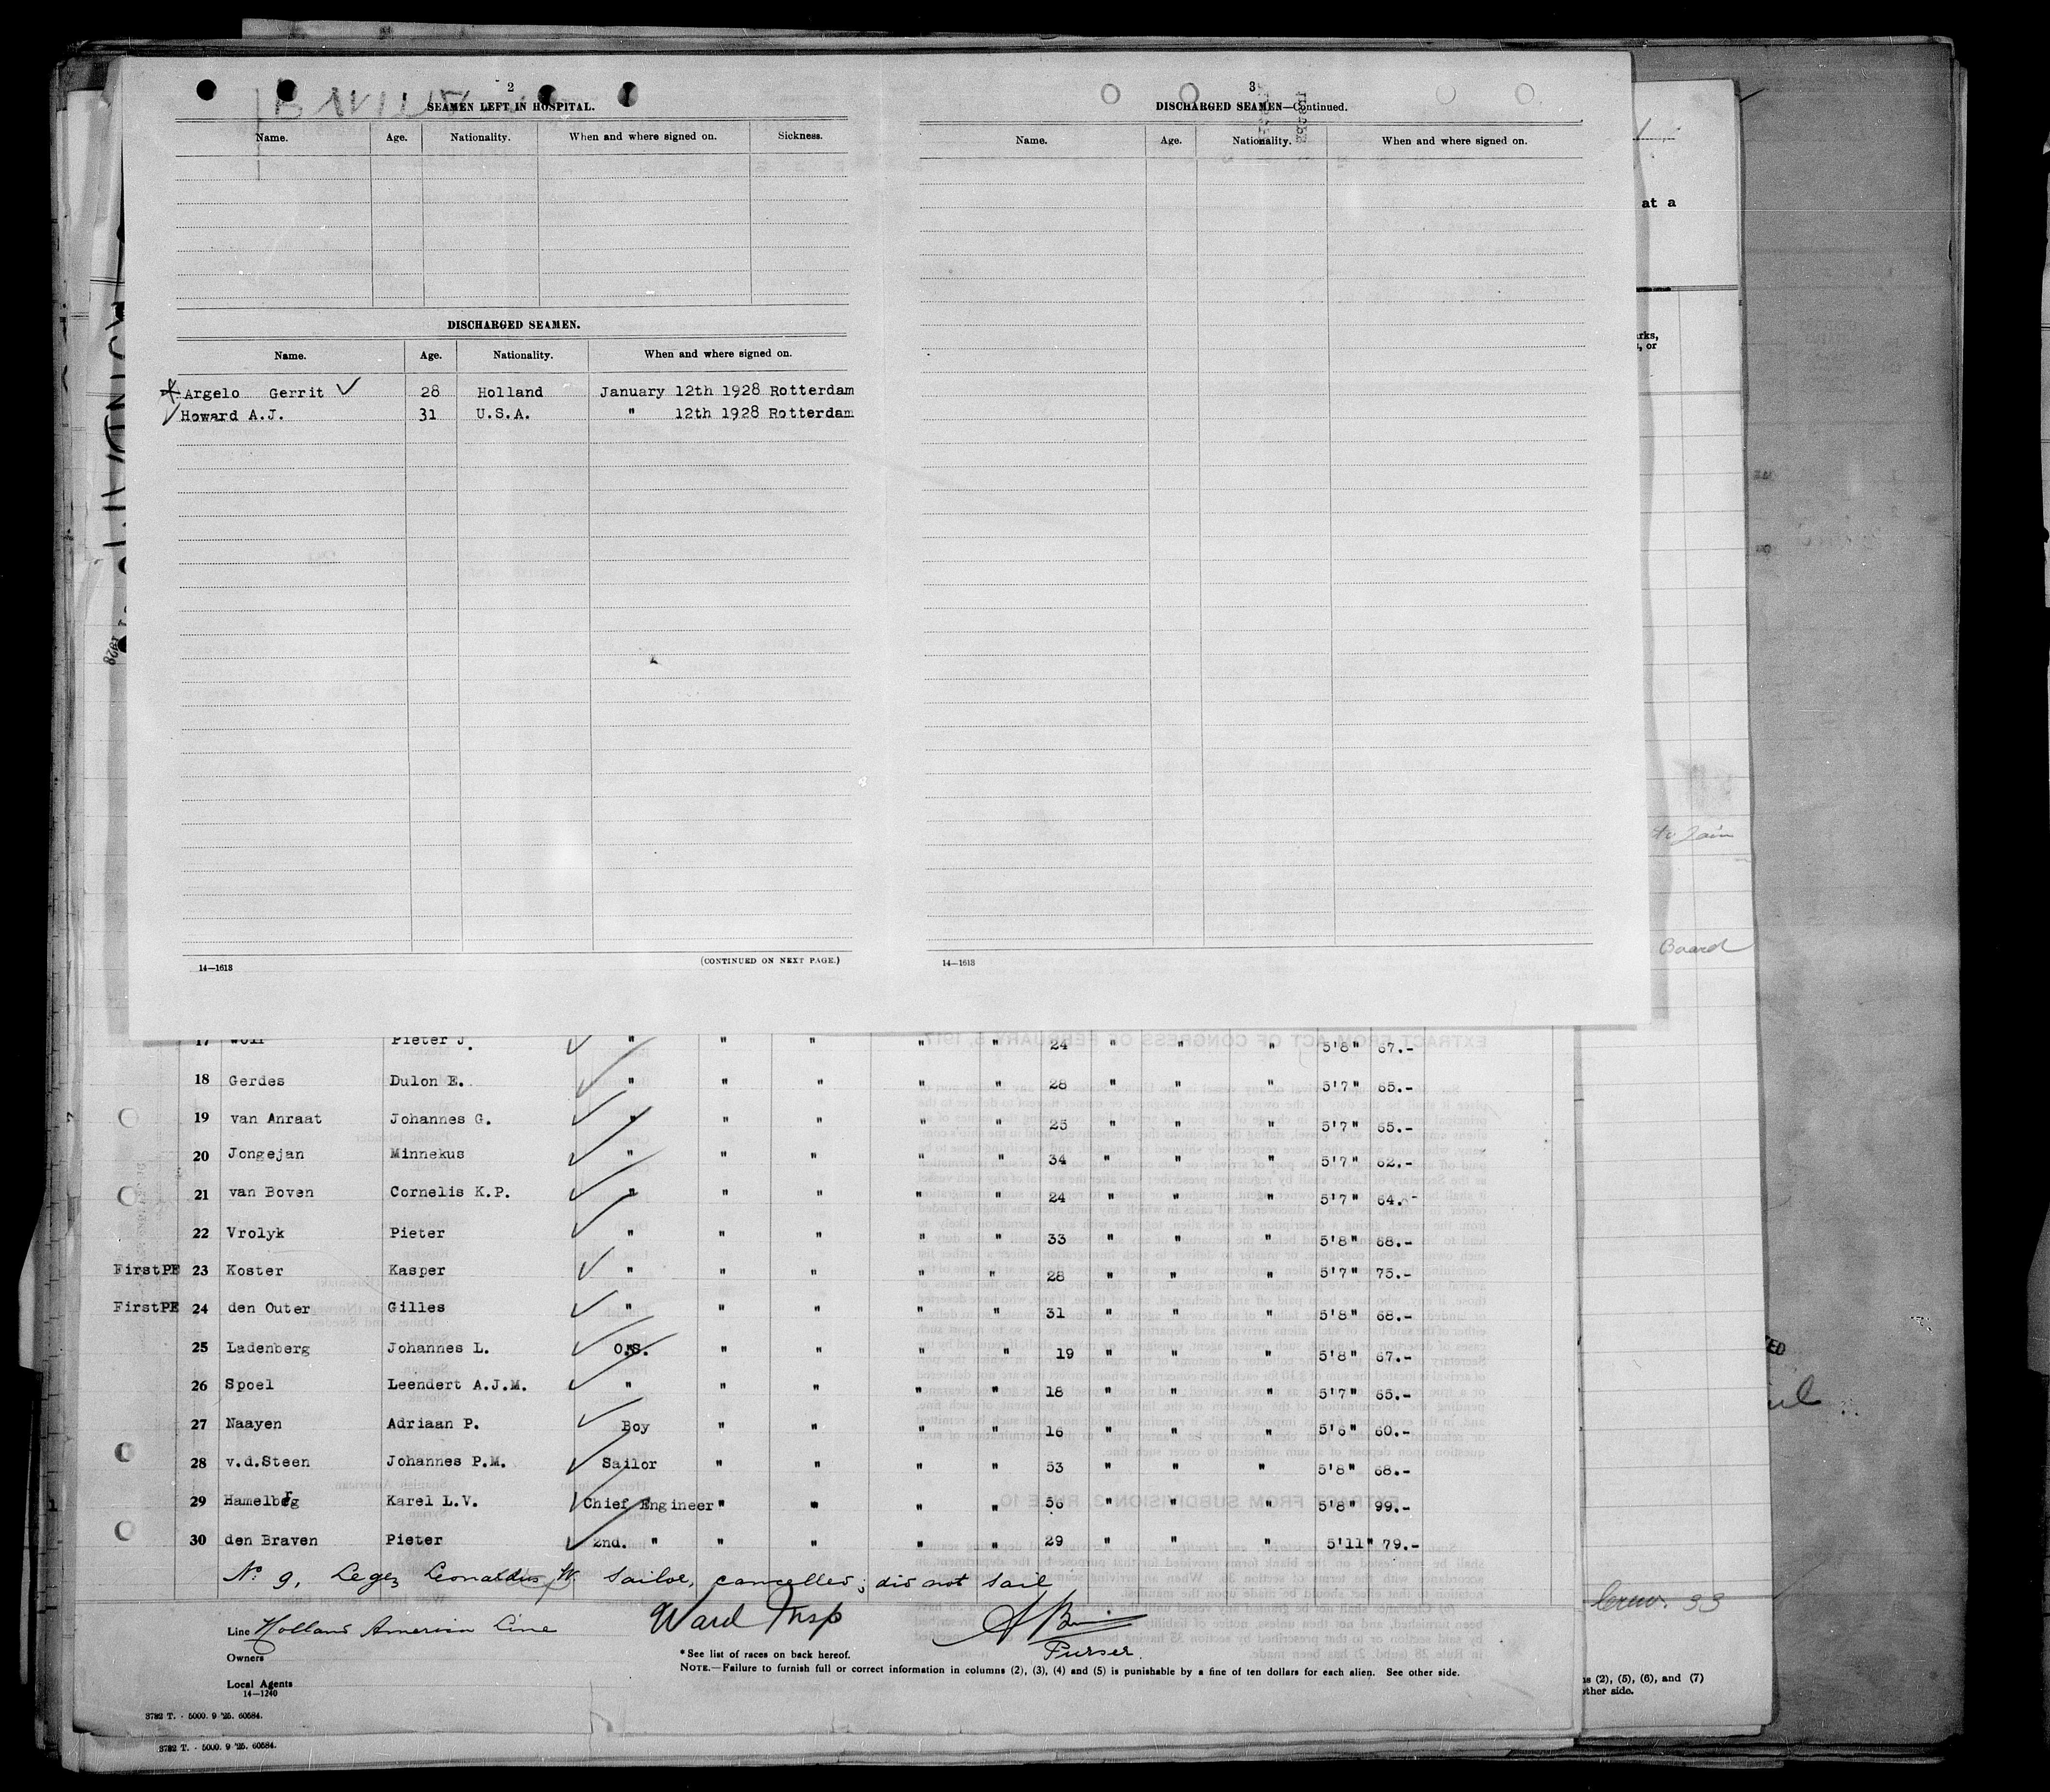 2
SEAMEN LEFT IN HOSPITAL.
Name. Age. Nationality. When and where signed on. Sickness.
DISCHARGED SEAMEN.
Name. Age. Nationality. When and where signed on.
Argelo Gerrit ✓ 28 Holland January 12th 1928 Rotterdam
✓ Howard A.J. 31 U.S.A. " 12th 1928 Rotterdam
14—1618 (CONTINUED ON NEXT PAGE.)
3
DISCHARGED SEAMEN—Continued.
Name. Age. Nationality. When and where signed on.
14—1618
at a
rks,
, or
to join
Board
17 Wolf Pieter J. ✓ " " " " " 24 " " " 5'8" 67.-
18 Gerdes Dulon E. ✓ " " " " " 28 " " " 5'7" 65.-
19 van Anraat Johannes G. ✓ " " " " " 25 " " " 5'7" 65.-
20 Jongejan Minnekus ✓ " " " " " 34 " " " 5'7" 62.-
21 van Boven Cornelis K.P. ✓ " " " " " 24 " " " 5'7" 64.-
22 Vrolyk Pieter ✓ " " " " " 33 " " " 5'8" 68.-
FirstPE 23 Koster Kasper ✓ " " " " " 28 " " " 5'7" 75.-
FirstPE 24 den Outer Gilles ✓ " " " " " 31 " " " 5'8" 68.-
25 Ladenberg Johannes L. ✓ O.S. " " " " 19 " " " 5'8" 67.-
26 Spoel Leendert A.J.M. ✓ " " " " " 18 " " " 5'7" 65.-
27 Naayen Adriaan P. ✓ Boy " " " " 16 " " " 5'6" 60.-
28 v.d.Steen Johannes P.M. ✓ Sailor " " " " 53 " " " 5'8" 68.-
29 Hamelberg Karel L.V. ✓ Chief Engineer " " " " 56 " " " 5'8" 99.-
30 den Braven Pieter ✓ 2nd. " " " " " 29 " " " 5'11" 79.-
No. 9, Legez Leonardus W. Sailor, cancelled; did not sail
Line Holland America Line
Ward Insp
Purser.
Owners
*See list of races on back hereof.
NOTE.—Failure to furnish full or correct information in columns (2), (3), (4) and (5) is punishable by a fine of ten dollars for each alien. See other side.
Local Agents
14—1240
3782 T. - 5000. 9 '25. 60584.
3782 T. - 5000. 9 '25. 60584.
Crew. 33
(2), (5), (6), and (7)
other side.
1928